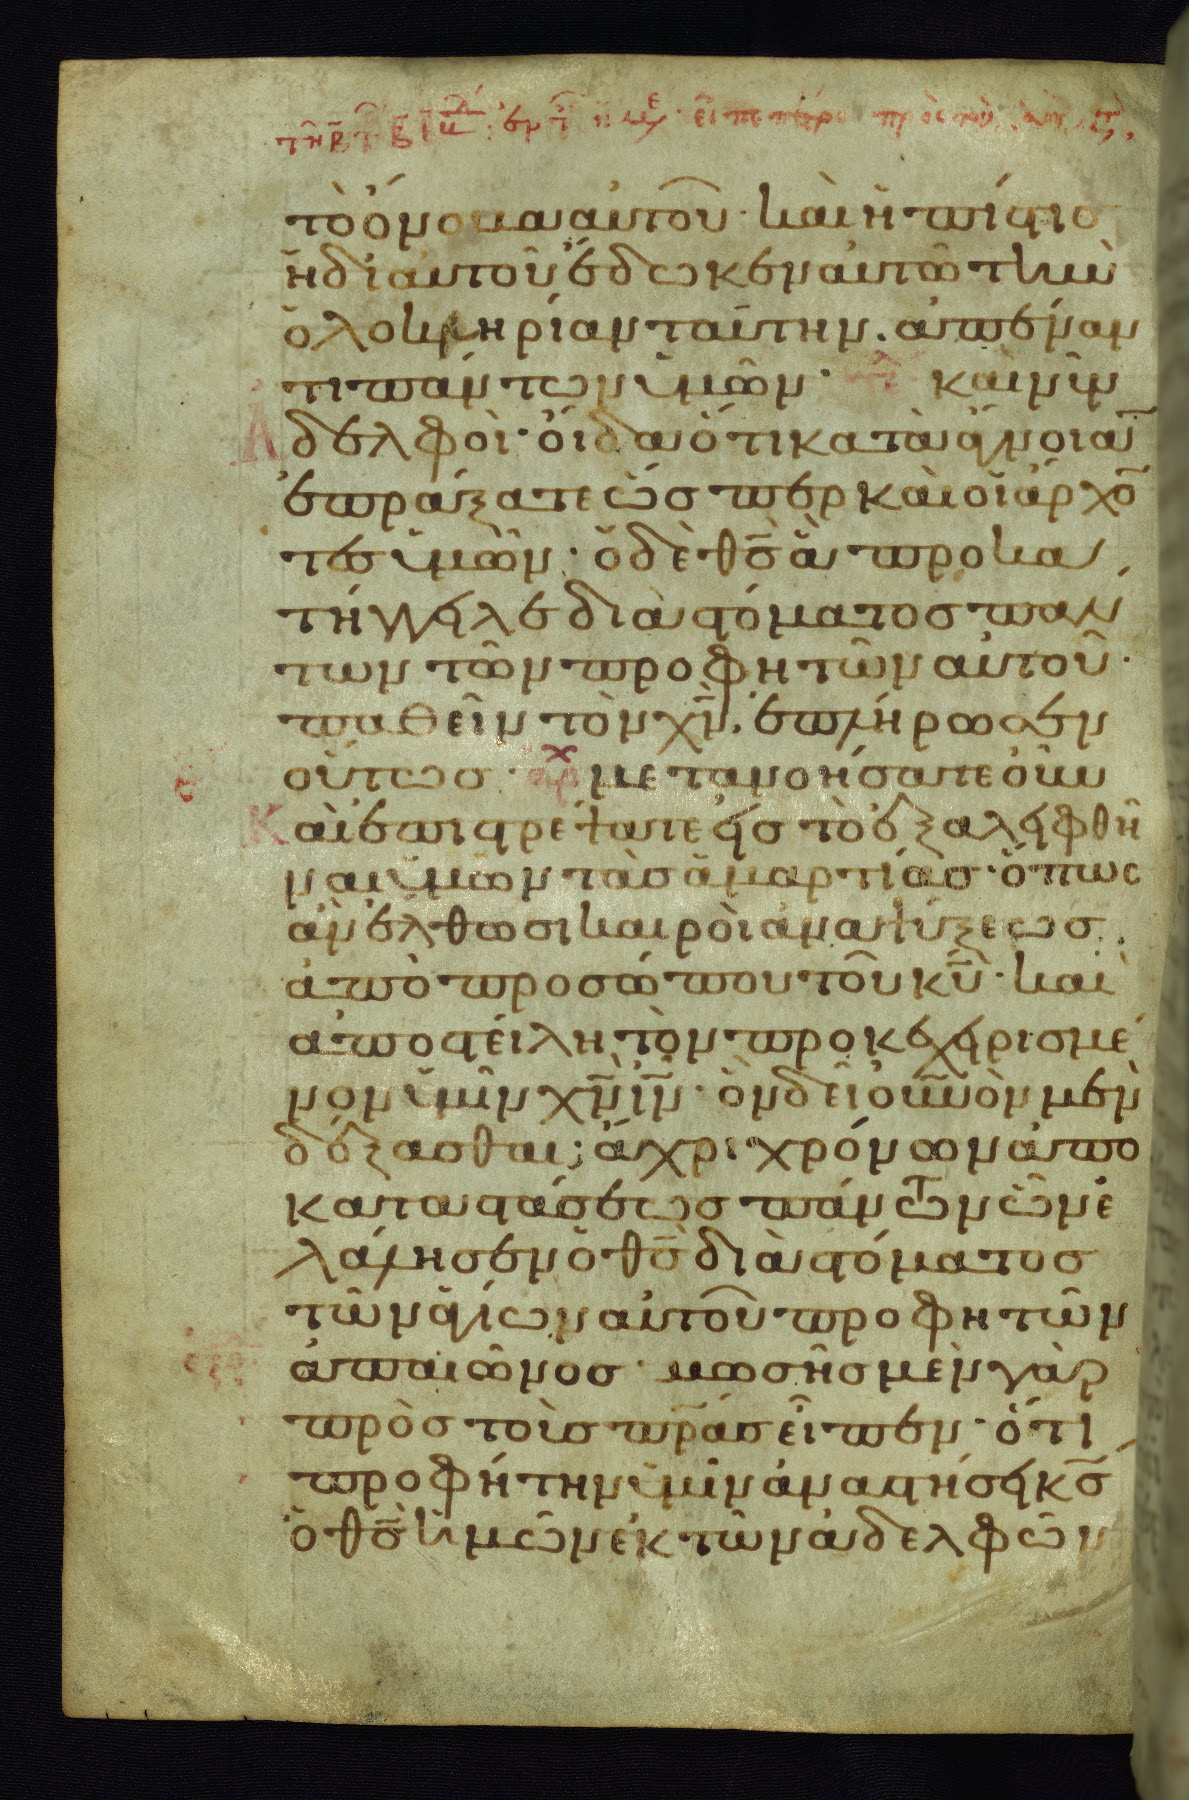 τὸ ὄνομα αὐτοῦ· καὶ ἡ πίστισ
ἡ δι αὐτοῦ ἔδωκεν αὐτῶ τὴν
ὁλοκληρίαν ταύτην. ἀπέναν
τι πάντων ὑμῶν· καὶ νῦν
Ἀδελφοὶ· οἶδα ὅτι κατὰ ἄγνοιαν
ἐπράξατε ὥσπερ καὶ οἱ ἄρχο̅
τεσ ὑμῶν· ὁ δὲ θ̅σ̅ ἃ προκα
τήγγειλε διὰ στόματος παν
των τῶν προφητῶν αὐτοῦ·
παθεῖν τὸν χ̅ν̅. ἐπλήρωσεν
οὕτωσ· μετανοήσατε οὖν
Καὶ ἐπιστρέψατε εἰσ τὸ ἐξαλειφθῆ
ναι ὑμῶν τὰσ ἁμαρτίασ· ὅπως
ἂν ἔλθωσι καιροὶ ἀναψύξεωσ
ἀπὸ προσώπου τοῦ κ̅υ̅· καὶ
ἀποστείλη τὸν προκεχειρισμέ
νον ὑμῖν χ̅ν̅ ι̅ν̅· ὃν δεῖ ο̅υ̅ν̅ο̅ν μὲν
δέξασθαι; ἄχρι χρόνων ἀπο
καταστάσεωσ πάντων ὧν ἐ
λάλησεν ὁ θ̅σ̅ διὰ στόματοσ
τῶν ἁγίων αὐτοῦ προφητῶν
ἀπ αἰῶνοσ· μωσῆσ μὲν γὰρ
πρὸσ τοὺσ π̅ρ̅ασ εἶπεν· ὅτι
προφήτην ὑμῖν ἀναστήσει κ̅σ̅
ὁ θ̅σ̅ ἡμῶν ἐκ τῶν ἀδελφῶν